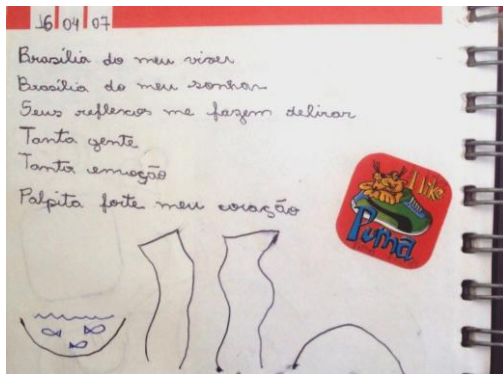 16 04 07
Brasília do meu viver
Brasília do meu sonhar
Seus reflexos me fazem delirar
Tanta gente
Tanta emoção
Palpita forte meu coração
I like
Puma